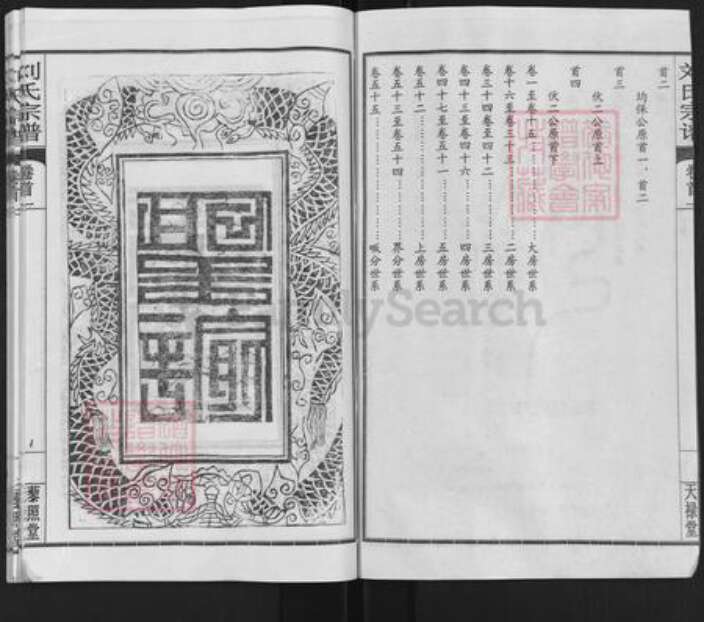 首二
均保公原首一、首二
首三
伏二公原首上
首四
伏二公原首下
卷一至卷十五……………大房世系
卷十六至卷三十三……………二房世系
卷三十四卷至四十二……………三房世系
卷四十三至卷四十六……………四房世系
卷四十七至卷五十一……………五房世系
卷五十二……………上房世系
卷五十三至卷五十四……………界分世系
卷五十五……………墈分世系
天禄堂
刘氏宗谱
卷首一
藜照堂
MySearch